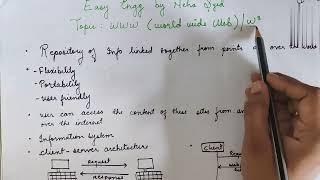 Easy Engg by Neha Syed
Topic: WWW (World Wide Web) / W³
• Repository of Info linked together from points all over the world
- Flexibility
- Portability
- User friendly
• user can access the content of these sites from
over the internet
• Information System
• client-server architecture
Request
Response
Client